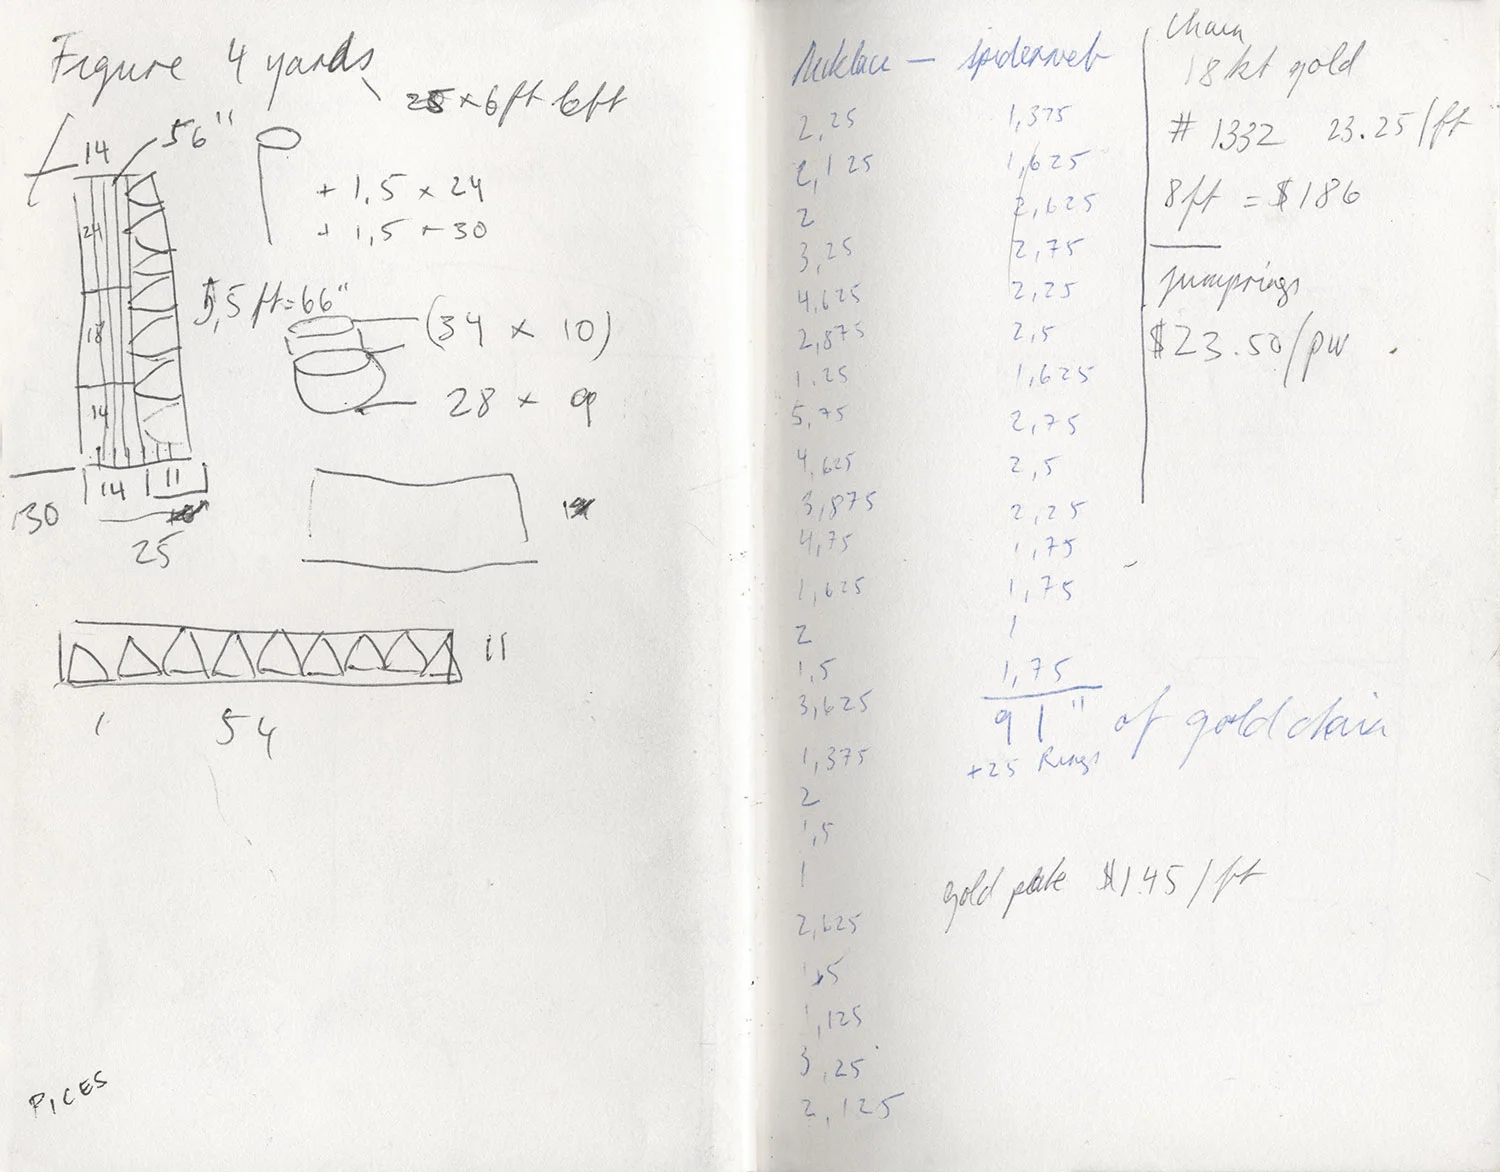 Figure 4 yards
25 × 6ft left
14
56"
+ 1,5 × 24
+ 1,5 × 30
24
5,5 ft = 66"
(34 × 10)
18
28 ×
14
14
11
30
25
11
1
54
PICES
Necklace — Spiderweb
2,25
2,125
2
3,25
4,625
2,875
1,25
5,75
4,625
3,875
4,75
1,625
2
1,5
3,625
1,375
2
1,5
1
2,625
1,5
1,125
3,25
2,125
1,375
1,625
2,625
2,75
2,25
2,5
1,625
2,75
2,5
2,25
1,75
1,75
1
1,75
91" of gold chain
+25 Rings
gold plate $1.45/ft
Chain
18kt gold
# 1332 23.25/ft
8ft = $186
jumprings
$23.50/pw